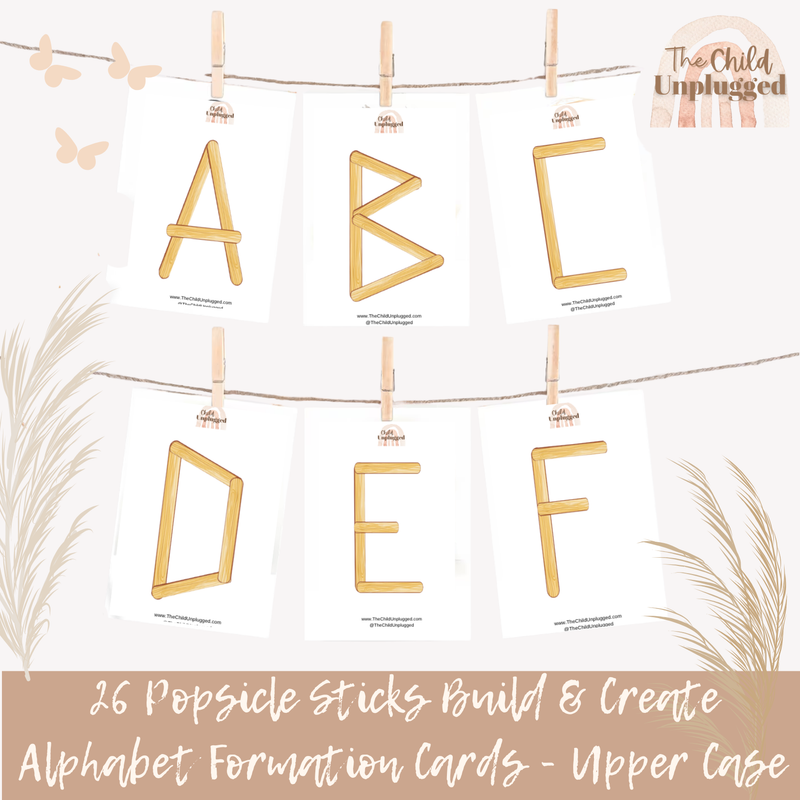 The Child
Unplugged
Child
Unplugged
Child
Unplugged
Child
Unplugged
A B C
www.TheChildUnplugged.com
@TheChildUnplugged
www.TheChildUnplugged.com
@TheChildUnplugged
www.TheChildUnplugged.com
@TheChildUnplugged
Child
Unplugged
Child
Unplugged
Child
Unplugged
D E F
www.TheChildUnplugged.com
@TheChildUnplugged
www.TheChildUnplugged.com
@TheChildUnplugged
www.TheChildUnplugged.com
@TheChildUnplugged
26 Popsicle Sticks Build & Create
Alphabet Formation Cards - Upper Case